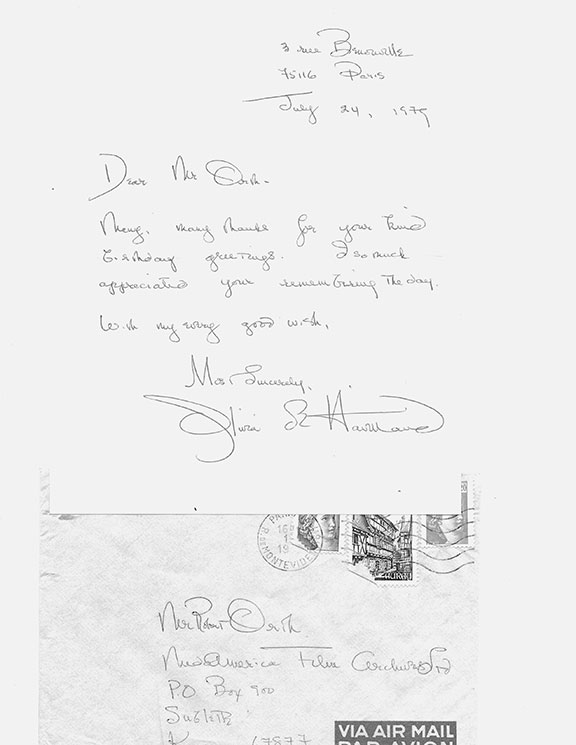 3 rue Benouville
75116 Paris
July 24, 1979
Dear Mr Orth -
Many, many thanks for your kind
birthday greetings. I so much
appreciated your remembering the day.
With my every good wish,
Most Sincerely,
Olivia de Havilland
PARIS
16
1
19
R. MONTEVIDEO
AURAY
Mr Robert Orth
Mid America Film Archives Ltd
PO Box 900
Sublette
K 67877
VIA AIR MAIL
PAR AVION